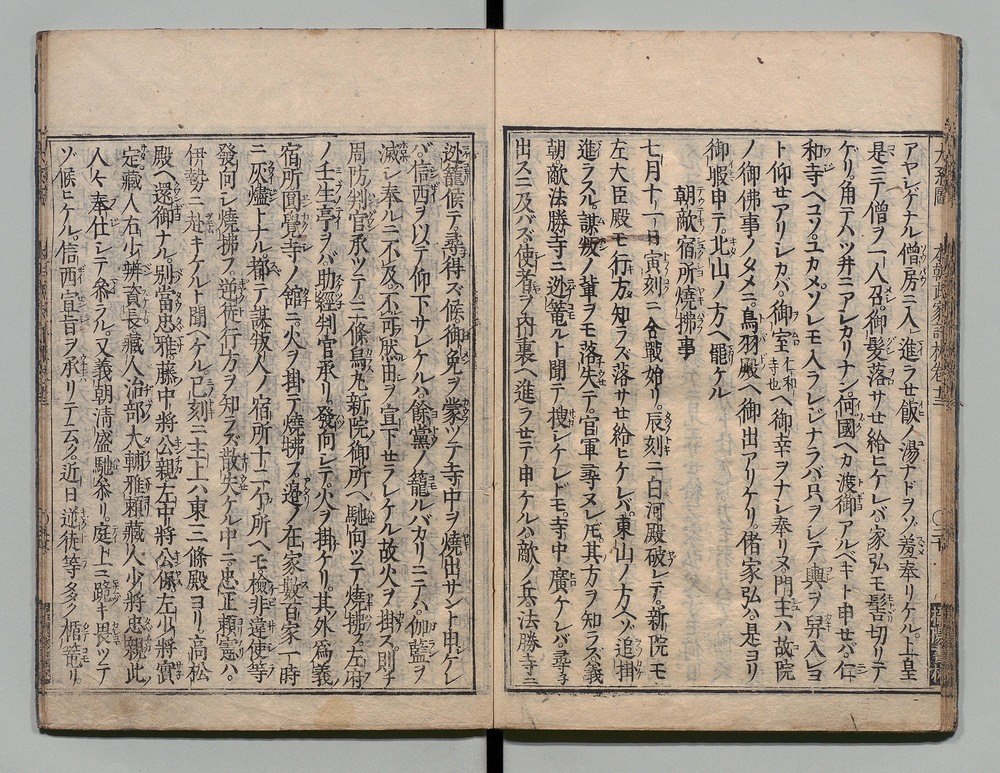 アヤシゲナル僧房ニ入レ進ラセ飯ノ湯ナドヲゾ羞奉リケル。上皇
是ニテ僧ヲ一人召。御髪落サセ給ヒケレバ。家弘モ髻切リテ
ケリ。角テハツ井ニアシカリナン。何國ヘカ渡御アルベキト申セバ。仁
和寺ヘコソユカメ。ソレモ入ラレジナラバ。只ヲシテ輿ヲ舁入レヨ
ト仰セアリシカバ。御室仁和寺也ヘ御幸ヲナシ奉リヌ。門主ハ故院
ノ御佛事ノタメニ。鳥羽殿ヘ御出アリケリ。偖家弘ハ是ヨリ
御暇申テ。北山ノ方ヘ罷ケル
朝敵宿所燒拂事
七月十一日寅刻ニ合戰始リ。辰刻ニ白河殿破レテ。新院モ
左大臣殿モ行方知ラズ落サセ給ヒケレバ。東山ノ方ヘゾ追掛
進ラスル。謀叛ノ輩ヲモ落失テ。官軍尋ヌレ𪜈其方ヲ知ラズ。義
朝敵法勝寺ニ迯篭ルト聞テ搜シケレドモ。寺中廣ケレバ。尋子
出スニ及バズ。使者ヲ内裏ヘ進ラセテ申ケルハ。敵ノ兵法勝寺ニ
迯籠候テ。尋得ズ候。御免ヲ蒙ツテ寺中ヲ燒出サント申ケレ
バ。信西ヲ以テ仰下サレケルハ。餘黨ノ籠ルバカリニテハ。伽藍ヲ
滅シ奉ルニ不及。不可然由ヲ宣下セラレケル故火ヲ掛ズ。則チ
周防判官承ツテ。三條烏丸新院御所ヘ馳向ツテ燒拂ヌ。左府
ノ壬生亭ヲバ。助經判官承リ。發向シテ。火ヲ掛ケリ。其外爲義
宿所圓覺寺ノ舘ニ。火ヲ掛テ燒拂フ。邉ノ在家數百家一時
ニ灰燼トナル。都テ謀叛人ノ宿所十二个所ヘモ檢非違使等
發向シ燒拂フ。逆徒行方ヲ知ラズ散失ケル中ニ。忠正頼憲ハ。
伊勢ニ赴キケルト聞ヘケル。巳刻ニ主上ハ東三條殿ヨリ。高松
殿ヘ還御ナル。別當忠雅。藤中將公親。左中將公保。左少將實
定。藏人右少辨資長。藏人治部大輔雅頼。藏人少將忠親。此
人〻奉仕シテ參ラル。又義朝清盛馳參リ。庭上ニ跪キ畏ツテ
ゾ候ヒケル。信西宣旨ヲ承リテ云ク。近日逆徒等多ク楯篭リ。